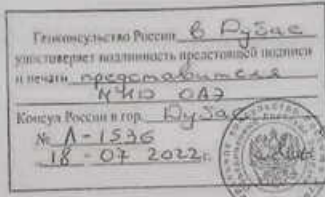 Генконсульство России в Дубае
удостоверяет подлинность предстоящей подписи
и печати представителя
МИД ОАЭ
Консул России в гор. Дубай
№ Л-1536
18 - 07 2022 г.